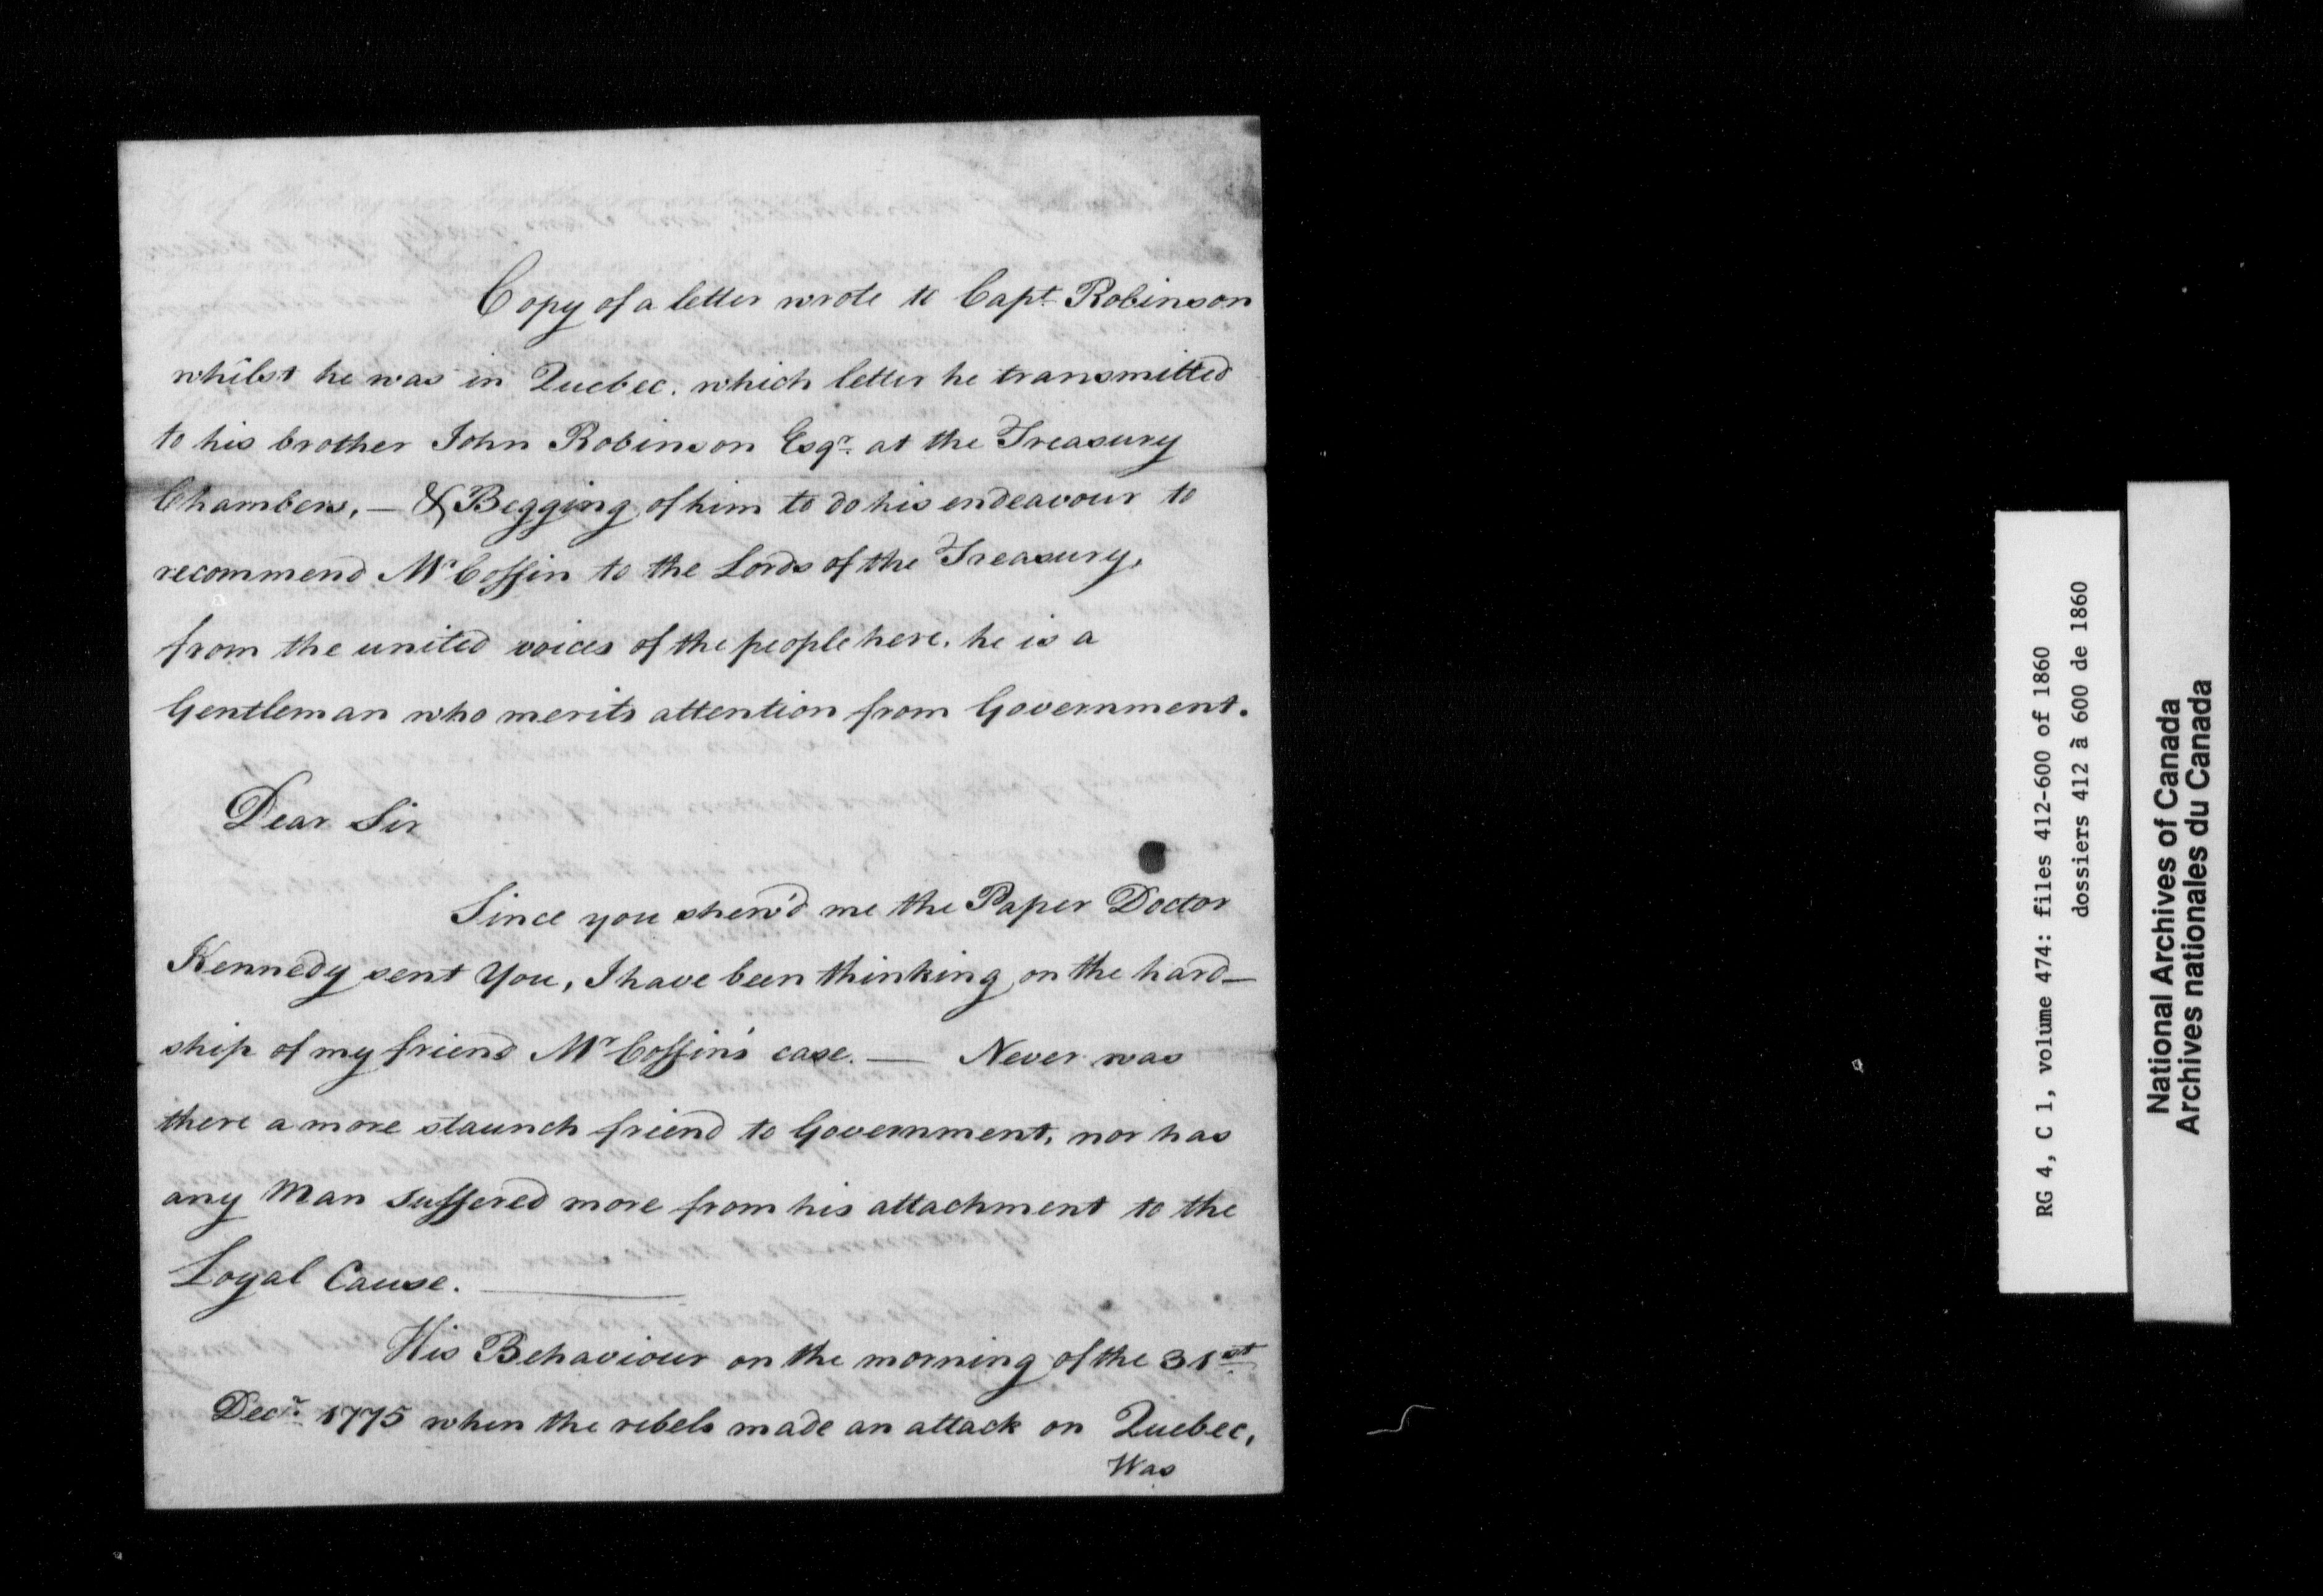 Copy of a letter wrote to Capt Robinson
whilst he was in Quebec. which letter he transmitted
to his brother John Robinson Esqr. at the Treasury
Chambers, — & Begging of him to do his endeavour to
recommend Mr Coffin to the Lords of the Treasury,
from the united voices of the people here. he is a
Gentleman who merits attention from Government.
Dear Sir
Since you shew'd me the Paper Doctor
Kennedy sent You, I have been thinking on the hard-
ship of my friend Mr Coffin's case. — Never was
there a more staunch friend to Government, nor has
any Man suffered more from his attachment to the
Loyal Cause. —
His Behaviour on the morning of the 31st
Decr. 1775 when the rebels made an attack on Quebec,
Was
RG 4, C 1, volume 474: files 412-600 of 1860
dossiers 412 à 600 de 1860
National Archives of Canada
Archives nationales du Canada